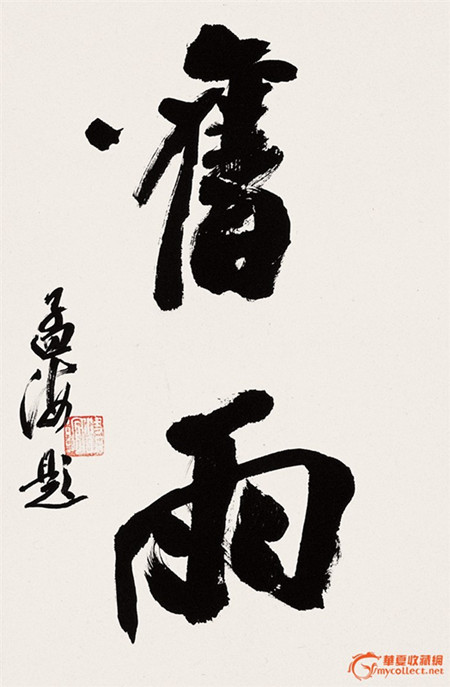 舊雨
孟海題
華夏收藏網
mycollect.net